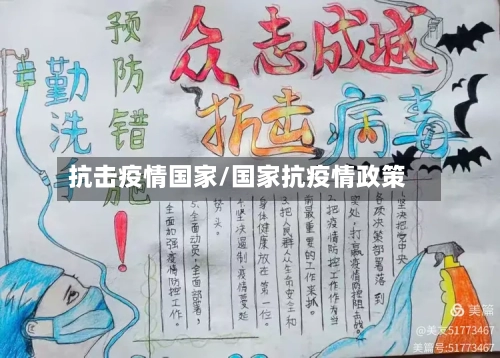 众志成城
抗击病毒
预防错施!
勤洗手
抗击疫情国家/国家抗疫情政策
1.坚决把党中央
各项决策部署落到
实处,打赢疫情防控阻击战。
2.把疫情防控工作作为当
前最重要的工作来抓。
3.把人民群众生命安全和
身体健康放在第一位。
4.坚决遏制疫情蔓延
势头。
5.全面动员,全面部署,
全面加强疫情防控工作。
美篇
@美友51773467
美篇号:51773467